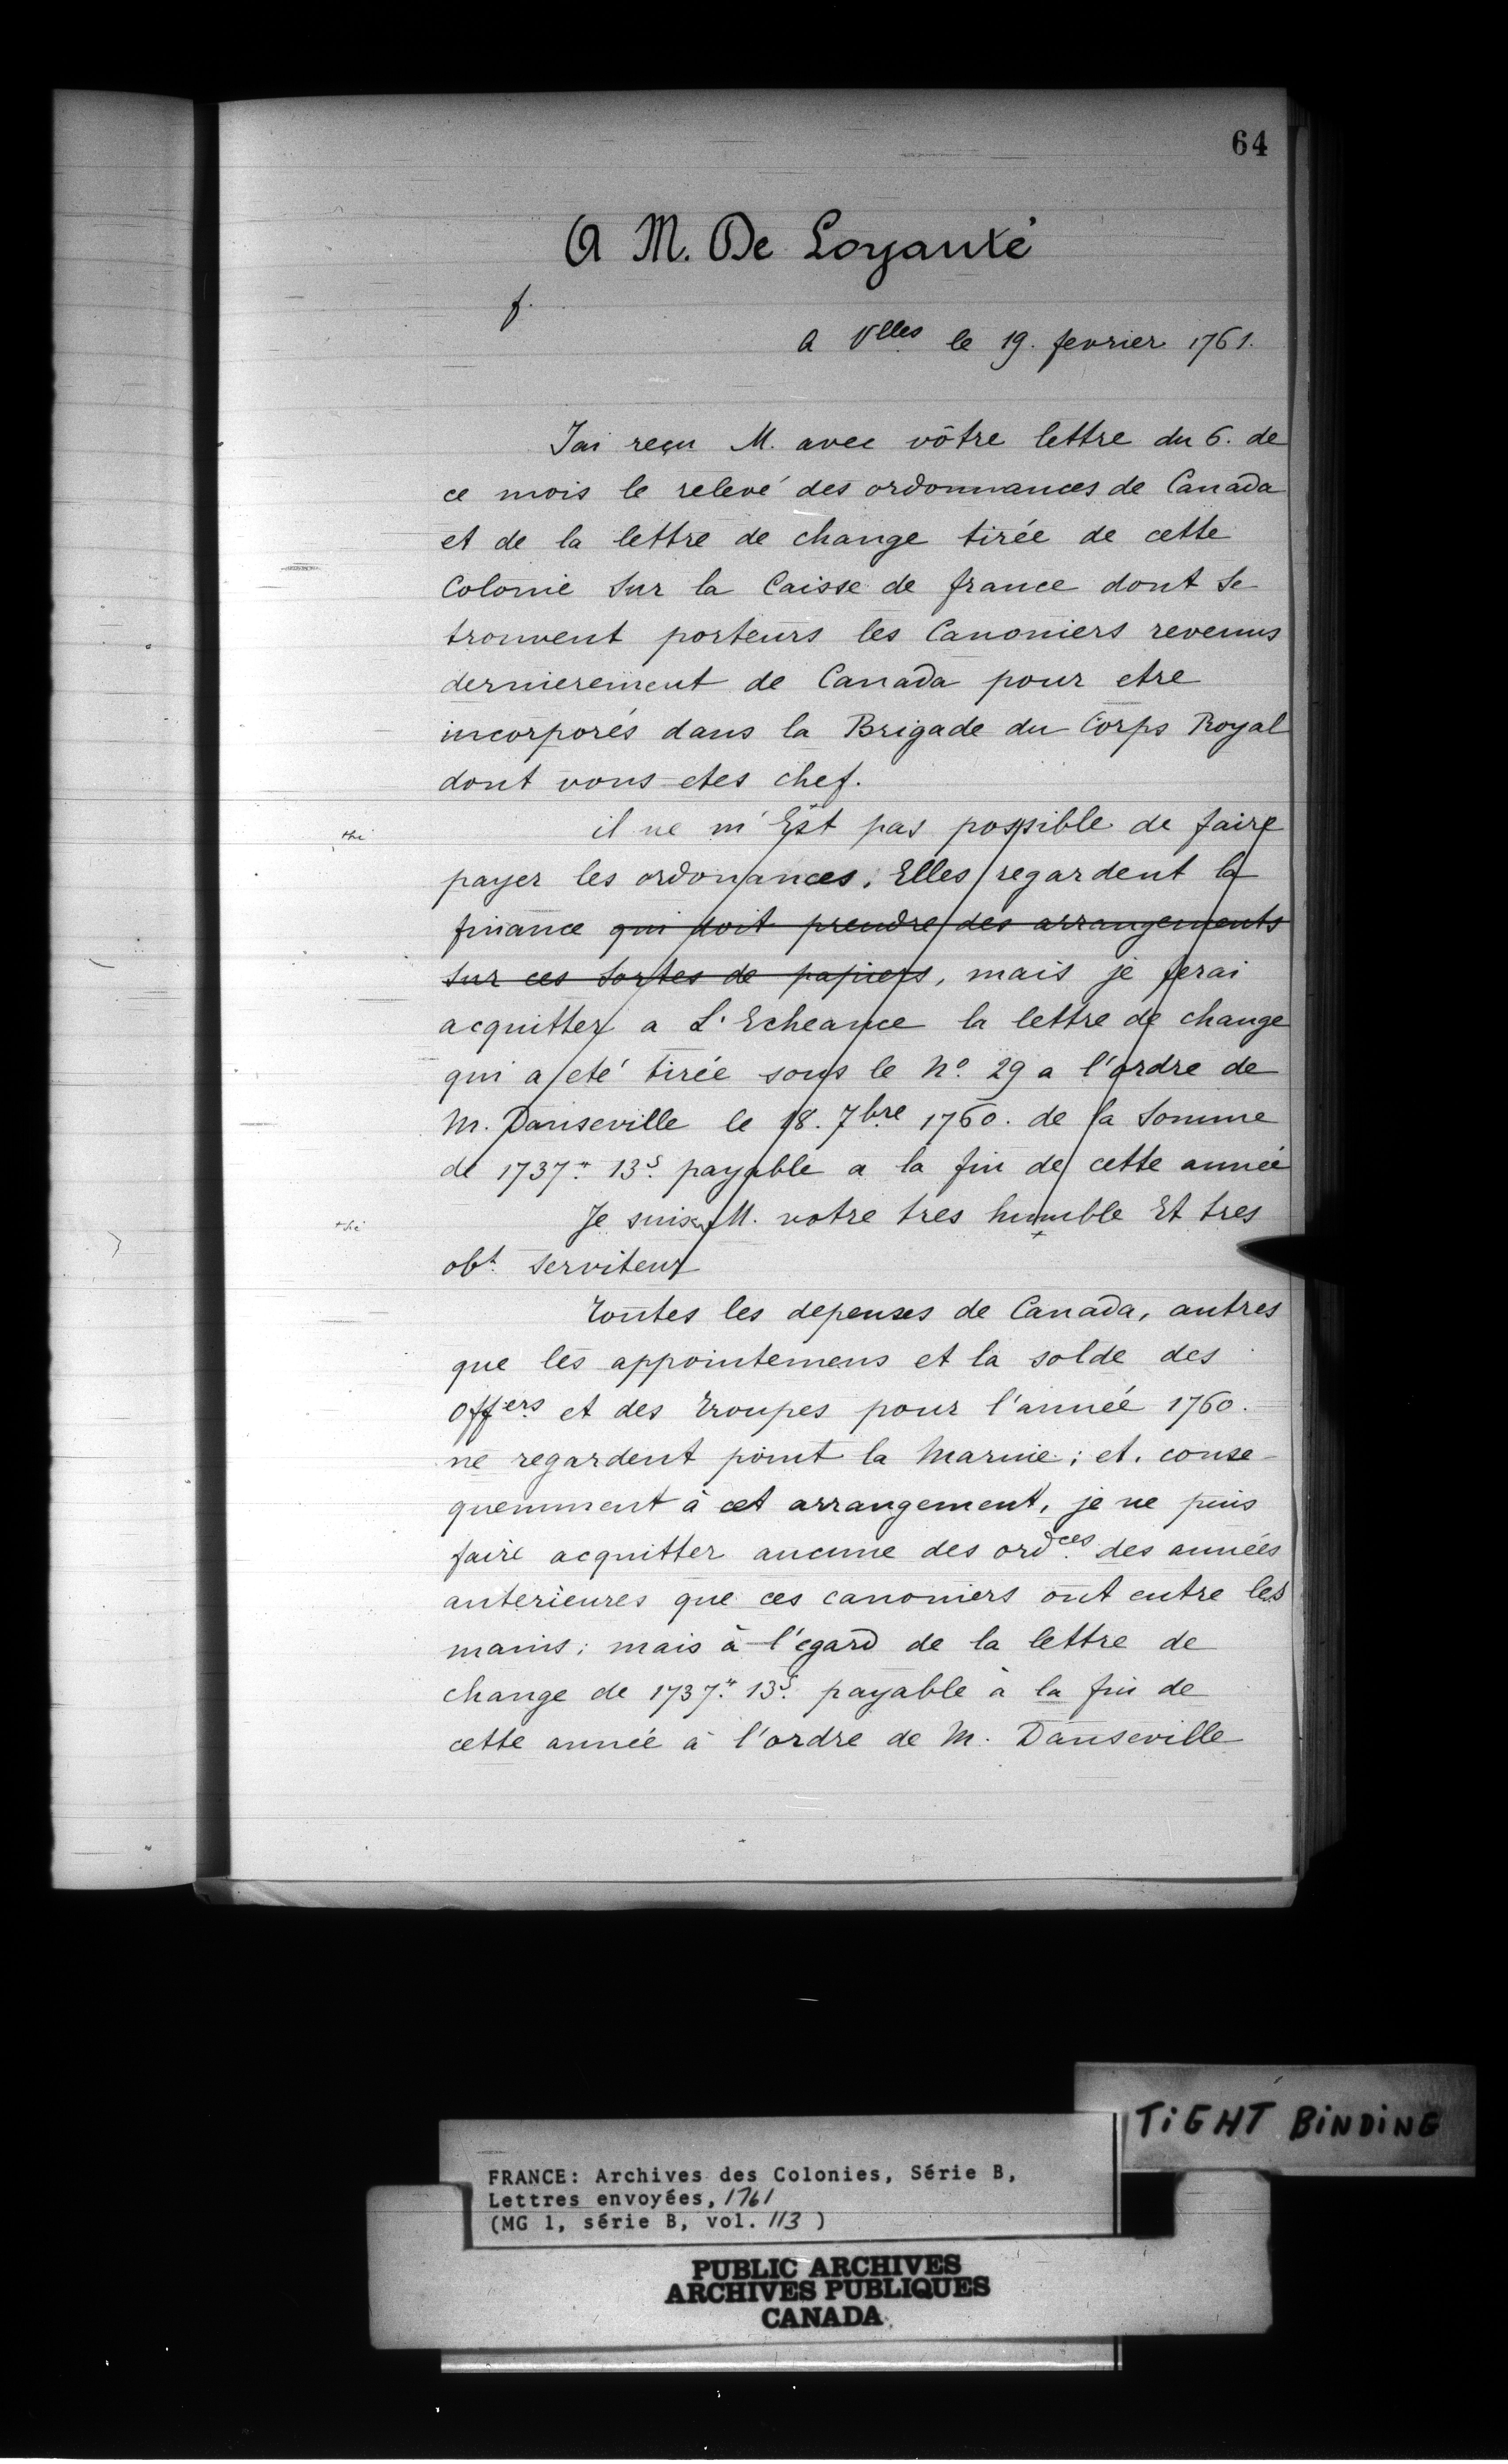 64
A M. De Loyauté
f.
A Vlles le 19. fevrier 1761.
Jai reçu M. avec vôtre lettre du 6. de
ce mois le relevé des ordonnances de Canada
et de la lettre de change tirée de cette
Colonie sur la Caisse de france dont se
trouvent porteurs les Canoniers revenus
dernierement de Canada pour etre
incorporés dans la Brigade du Corps Royal
dont vous etes chef.
il ne m'Est pas possible de faire
payer les ordonances. Elles regardent la
finance qui doit prendre des arrangements
sur ces sortes de papiers, mais je ferai
acquitter a L'Echeance la lettre de change
qui a eté tirée sous le No. 29 a l'ordre de
M. Danseville le 18. 7bre 1760. de la somme
de 1737.tt 13.s payable a la fin de cette année
Je suis M. votre tres humble Et tres
obt. serviteur
toutes les depenses de Canada, autres
que les appointemens et la solde des
offers. et des troupes pour l'année 1760.
ne regardent point la Marine; et. conse-
quemment à cet arrangement, je ne puis
faire acquitter aucune des ordces. des années
anterieures que ces canoniers ont entre les
mains; mais à l'egard de la lettre de
change de 1737.tt 13.s payable à la fin de
cette année à l'ordre de M. Danseville
TiGHT BiNDiNG
FRANCE: Archives des Colonies, Série B,
Lettres envoyées, 1761
(MG 1, série B, vol. 113 )
PUBLIC ARCHIVES
ARCHIVES PUBLIQUES
CANADA